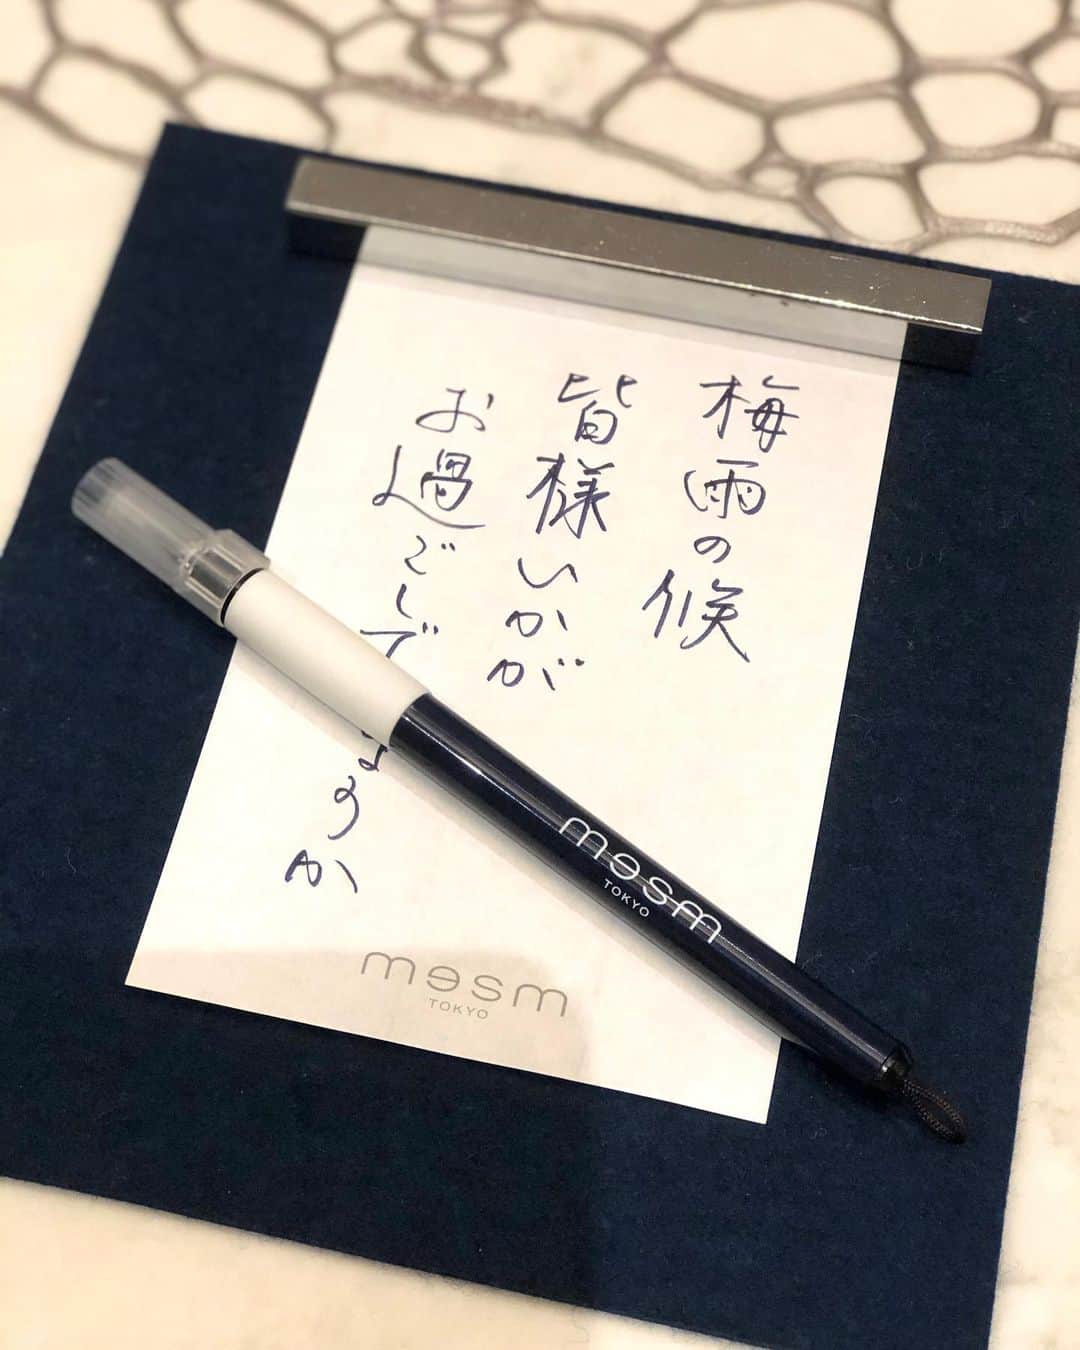 梅雨の候
皆様いかが
お過ごしで
ますか
mesm
TOKYO
mesm
TOKYO